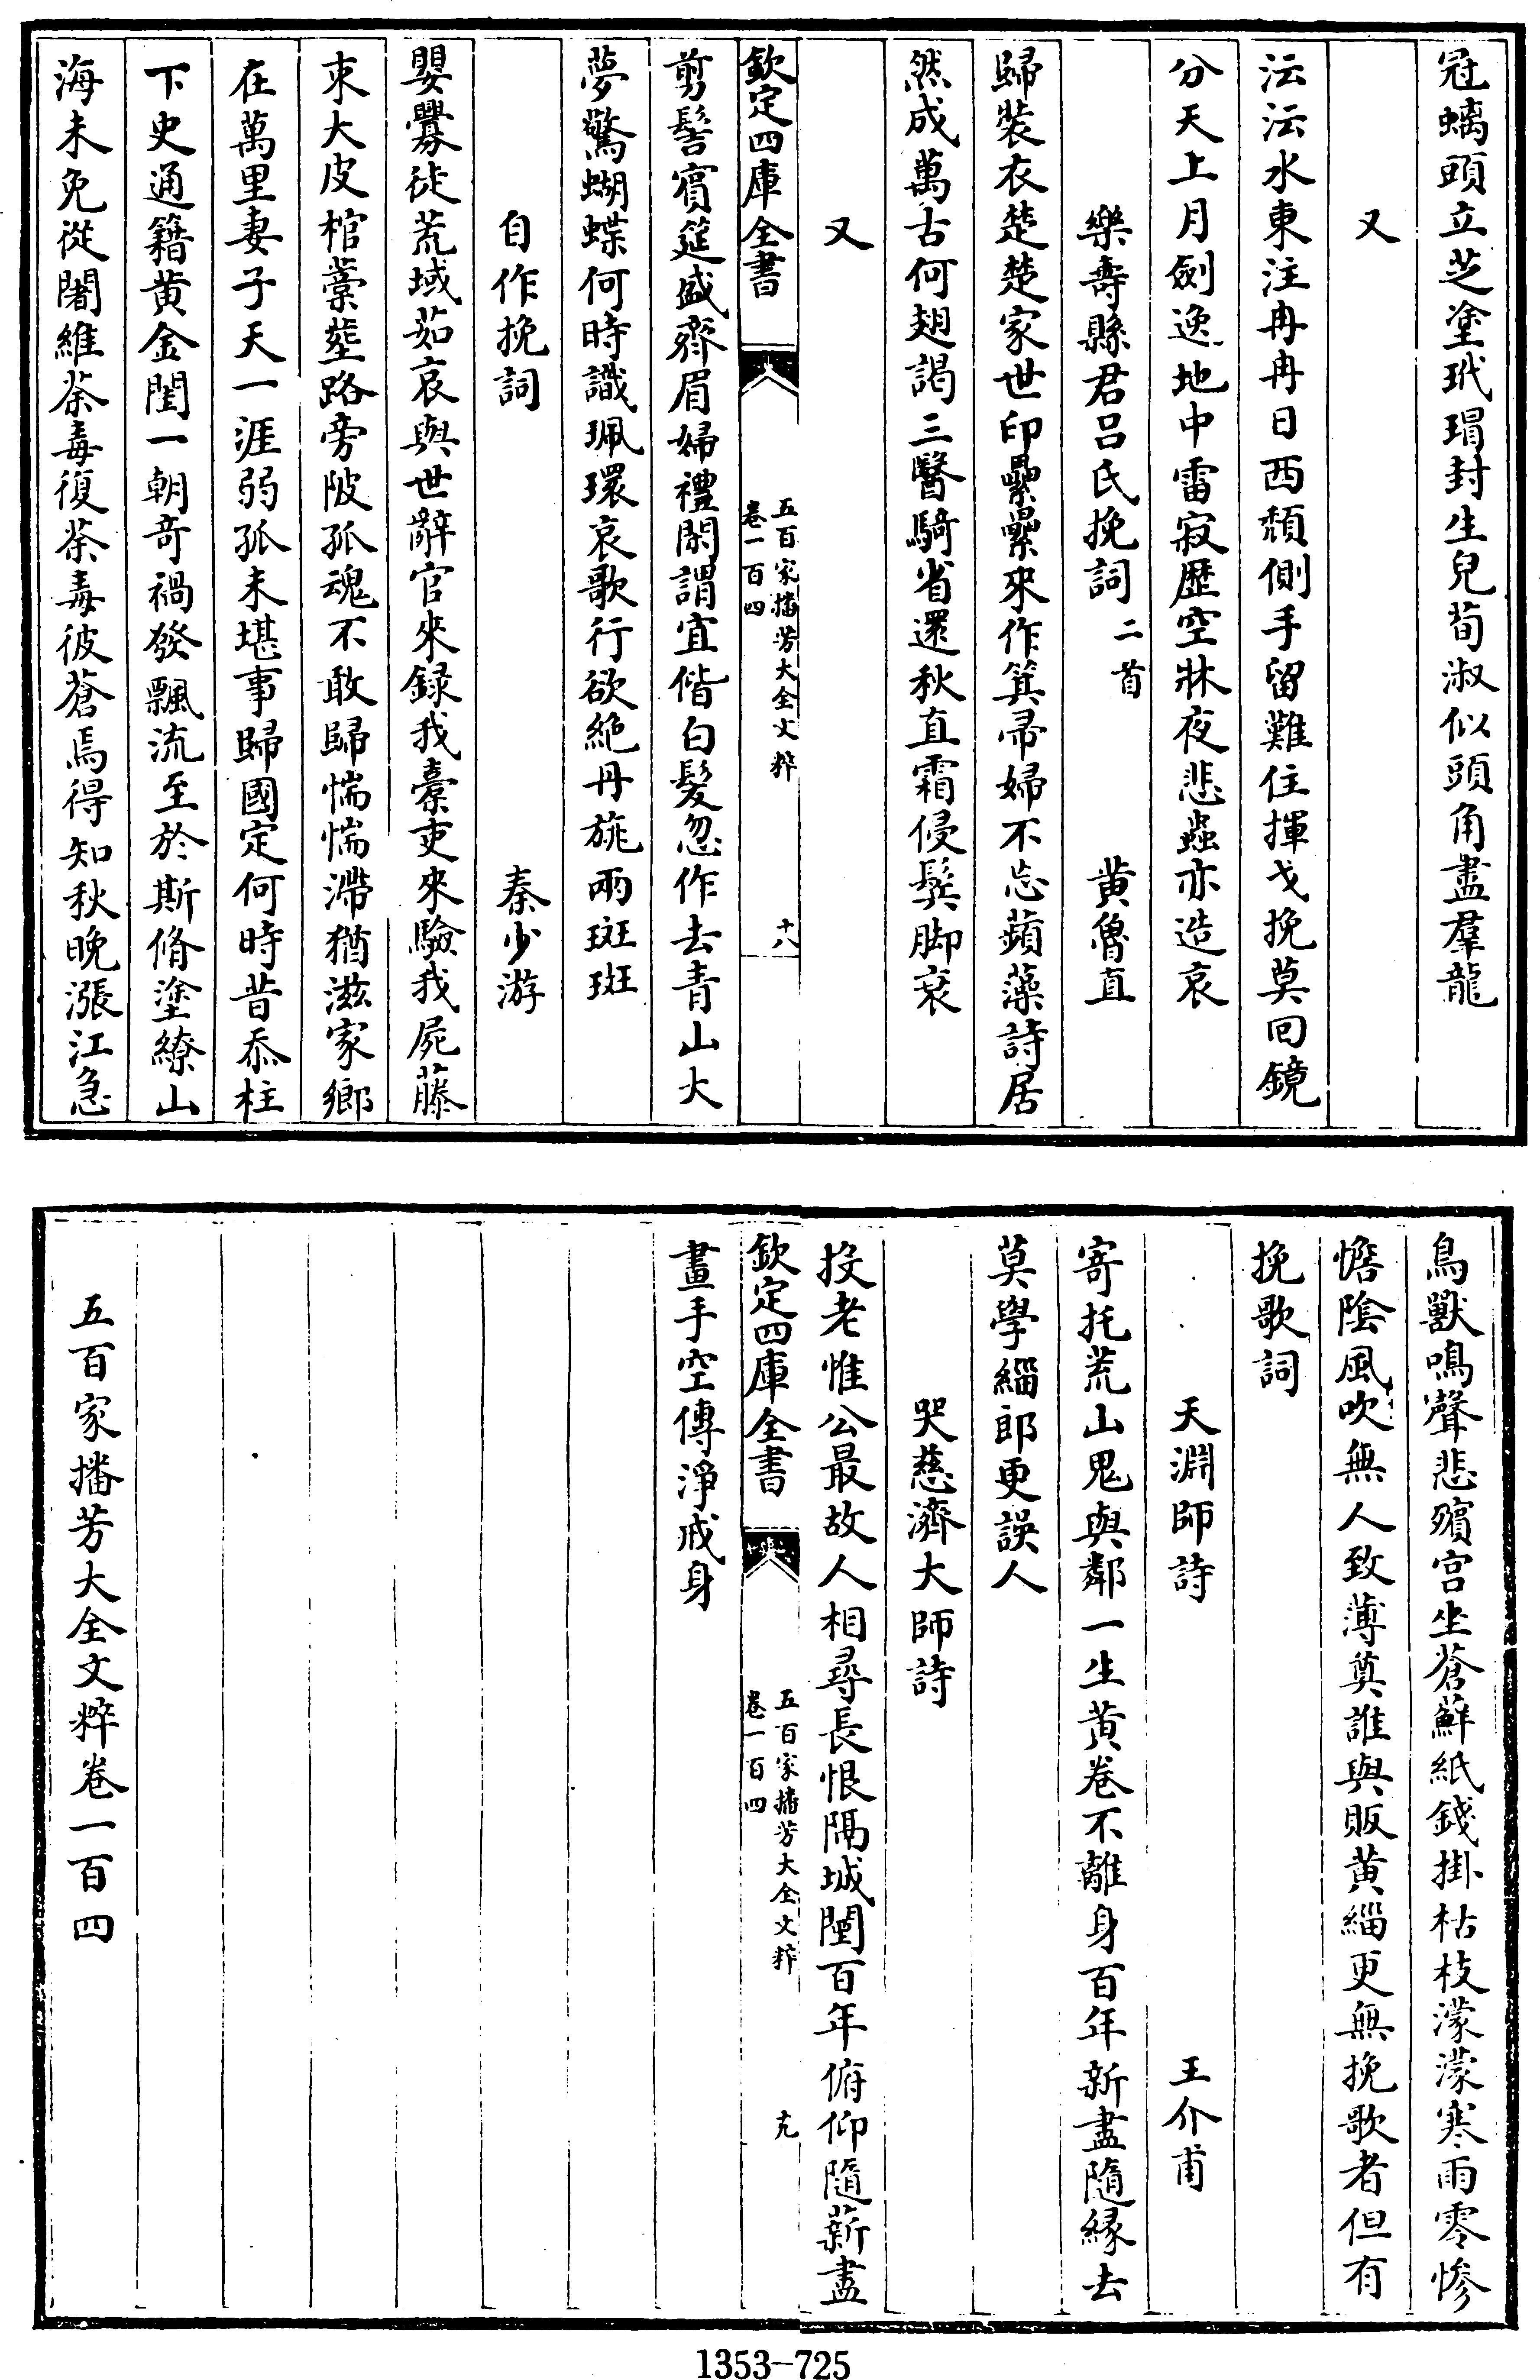 冠螭頭立芝塗玳瑁封生兒荀淑似頭角盡羣龍
又
沄沄水東注冉冉日西頽側手留難住揮戈挽莫回鏡
分天上月劍逸地中雷寂歴空牀夜悲蟲亦造哀
樂壽縣君呂氏挽詞二首 黄魯直
歸裝衣楚楚家世印纍纍來作箕帚婦不忘蘋藻詩居
然成萬古何翅謁三醫騎省還秋直霜侵鬂脚衰
又
欽定四庫全書 五百家播芳大全文粹 卷一百四 十八
剪髻賓筵盛齊眉婦禮閑謂宜偕白髮忽作去青山大
夢驚蝴蝶何時識珮環哀歌行欲絶丹旐雨斑斑
自作挽詞 秦少游
嬰釁徙荒域茹哀與世辭官來録我橐吏來驗我屍藤
束大皮棺藁塟路旁陂孤魂不敢歸惴惴滯猶滋家鄉
在萬里妻子天一涯弱孤未堪事歸國定何時昔忝柱
下史通籍黄金閨一朝竒禍發飄流至於斯脩塗繚山
海未免從闍維荼毒復荼毒彼蒼焉得知秋晚漲江急
鳥獸鳴聲悲殯宫坐蒼蘚紙錢掛枯枝濛濛寒雨零慘
憺隂風吹無人致薄奠誰與販黄緇更無挽歌者但有
挽歌詞
天淵師詩 王介甫
寄托荒山鬼與鄰一生黄卷不離身百年新盡隨縁去
莫學緇郎更誤人
哭慈濟大師詩
投老惟公最故人相尋長恨隔城闉百年俯仰隨薪盡
欽定四庫全書 五百家播芳大全文粹 卷一百四 十九
畫手空傳淨戒身
五百家播芳大全文粹卷一百四
1353-725